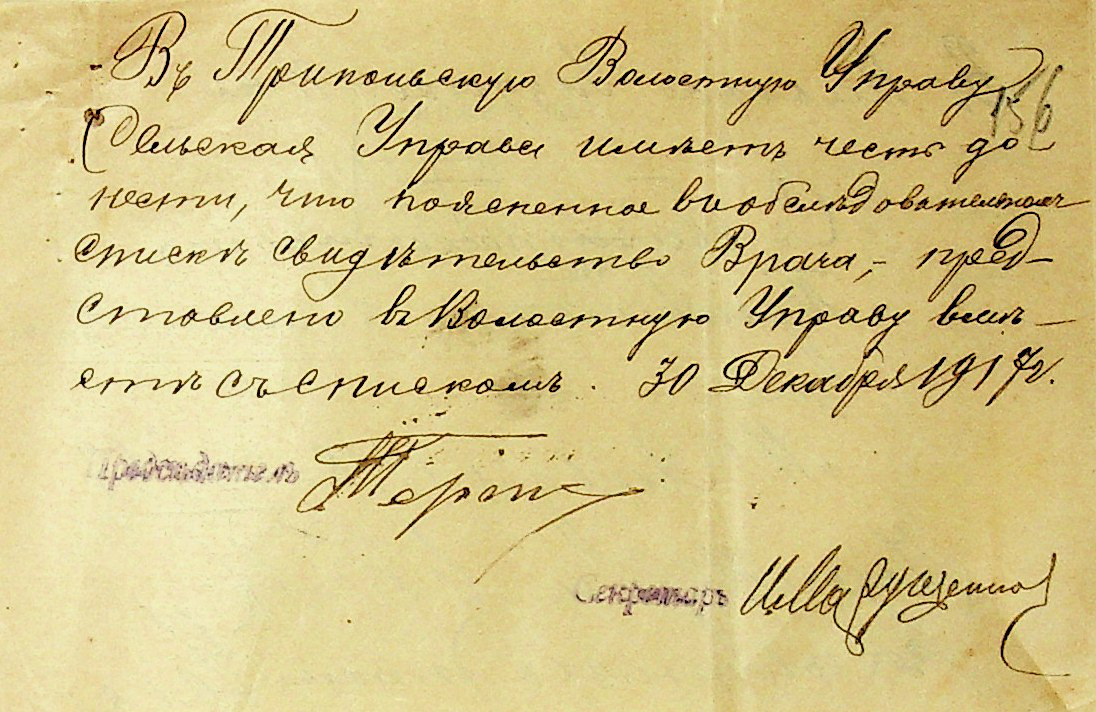 Въ Трипольскую Волостную Управу
156
Сельская Управа имѣетъ честь до
нести, что поясненное в обслѣдовательномъ
спискѣ свидѣтельство Врача, – пред–
ставлено въ Волостную Управу вмѣ–
стѣ съ спискомъ. 30 Декабря 1917 г.
Предсѣдатель
Секретарь